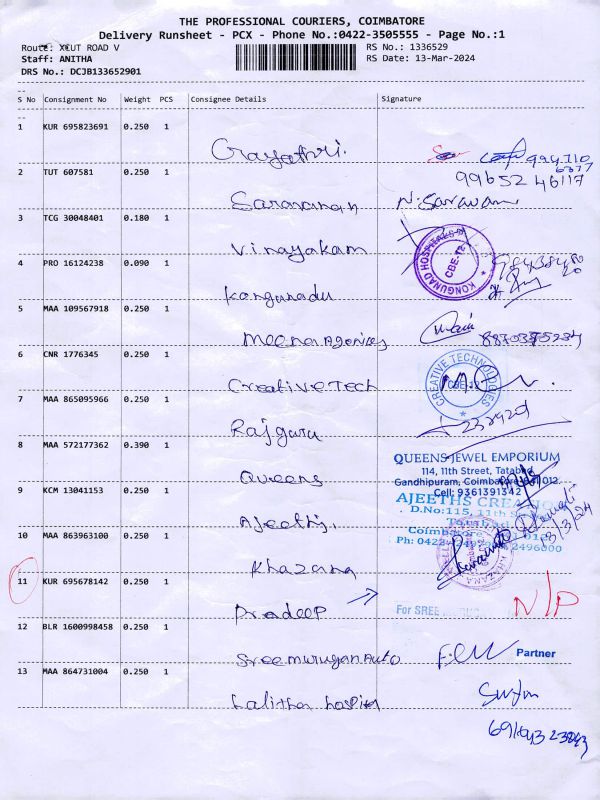 THE PROFESSIONAL COURIERS, COIMBATORE
Delivery Runsheet - PCX - Phone No.:0422-3505555 - Page No.:1
Route: XCUT ROAD V RS No.: 1336529
Staff: ANITHA RS Date: 13-Mar-2024
DRS No.: DCJB133652901
S No Consignment No Weight PCS Consignee Details Signature
1 KUR 695823691 0.250 1
Gayathri.
2 TUT 607581 0.250 1 99652 46117
Saravanan N. Saravanan
3 TCG 30048401 0.180 1
Vinayakam
KONGUNAD HOSPITALS
CBE-12
4 PRO 16124238 0.090 1
Kongunadu
5 MAA 109567918 0.250 1
Meena Agencies
6 CNR 1776345 0.250 1
CREATIVE TECHNOLOGIES
CBE-12
Creative Tech
7 MAA 865095966 0.250 1
Rajguru
8 MAA 572177362 0.390 1
QUEENS JEWEL EMPORIUM
114, 11th Street, Tatabad
Gandhipuram, Coimbatore-641 012.
Queens Cell: 9361391342
9 KCM 13041153 0.250 1 AJEETHS CREATION
D.No:115, 11th
Ajeeths.
10 MAA 863963100 0.250 1
Khazana KHAZANA
11 KUR 695678142 0.250 1
Pradeep N/P
For SREE
12 BLR 1600998458 0.250 1
Sreemurugan Auto Partner
13 MAA 864731004 0.250 1
Lalitha hospital